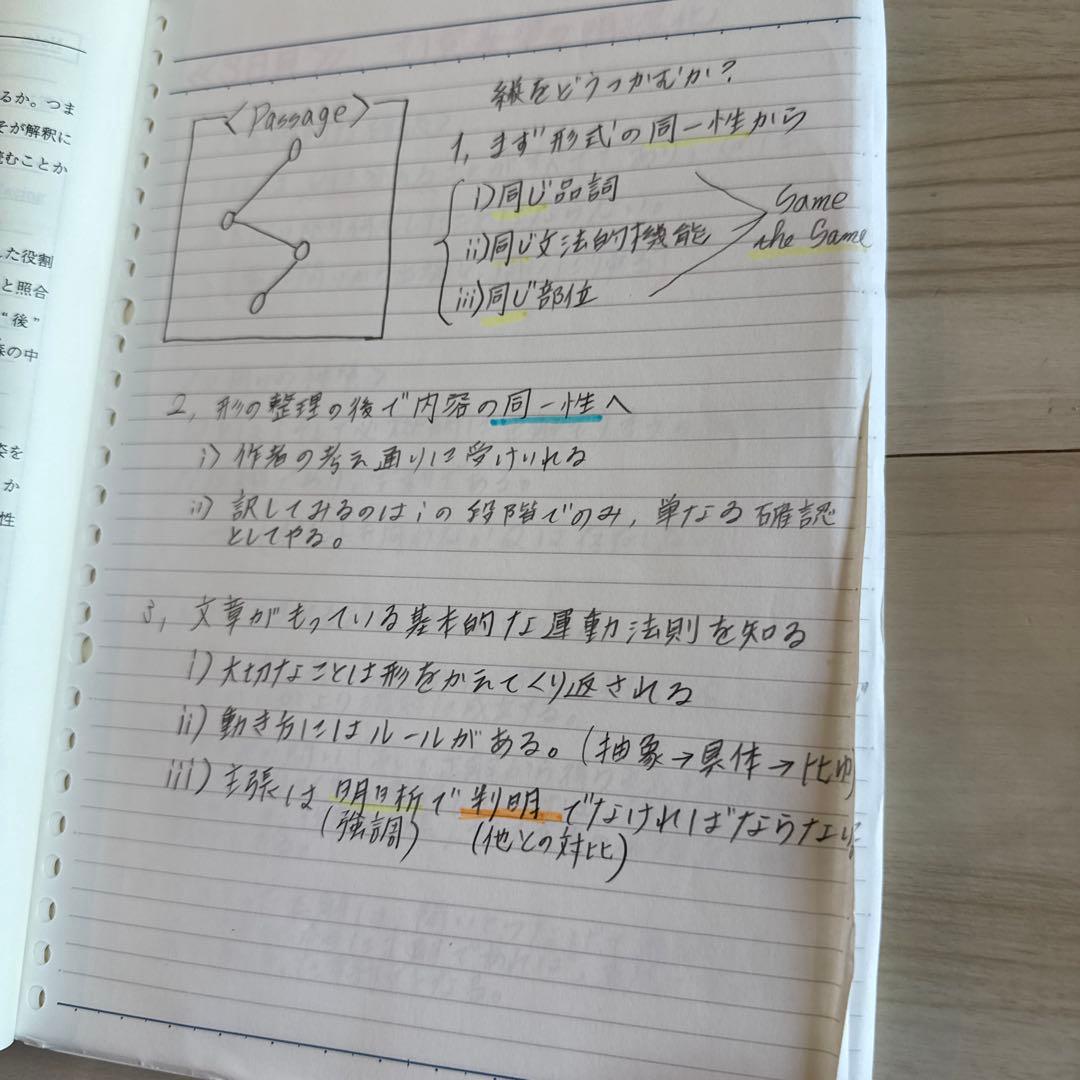 るか。つま
そが解釈に
読むことか
した役割
と照合
“後”
森の中
姿を
か
性
<Passage>
縦をどうつかむか?
1, まず“形式”の同一性から
i)同じ品詞
ii)同じ文法的機能
iii)同じ部位
Same
the Same
2, 形の整理の後で内容の同一性へ
i) 作者の考え通りに受けいれる
ii) 訳してみるのはiの段階でのみ, 単なる確認
としてやる。
3, 文章がもっている基本的な運動法則を知る
i) 大切なことは形をかえてくり返される
ii) 動き方にはルールがある。(抽象→具体→比ゆ)
iii) 主張は明晰で判明でなければならない。
(強調) (他との対比)